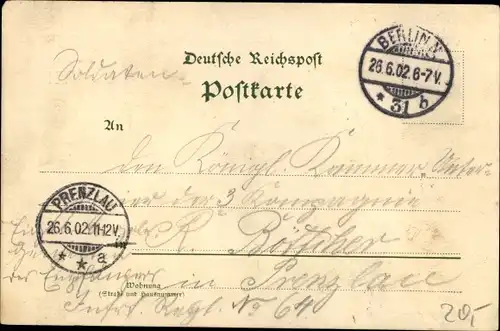 Deutsche Reichspost
Postkarte
Soldaten-
BERLIN N.
26.6.02.6-7V.
* 31 b
An
den Königl. Kammer-Unter-
der 3 Kompagnie
PRENZLAU
26.6.02.11-12V.
* * a
R. Böttcher
des Empfängers
in Prenzlau
Wohnung
(Straße und Hausnummer)
Inftr. Regt. No 64
20,-